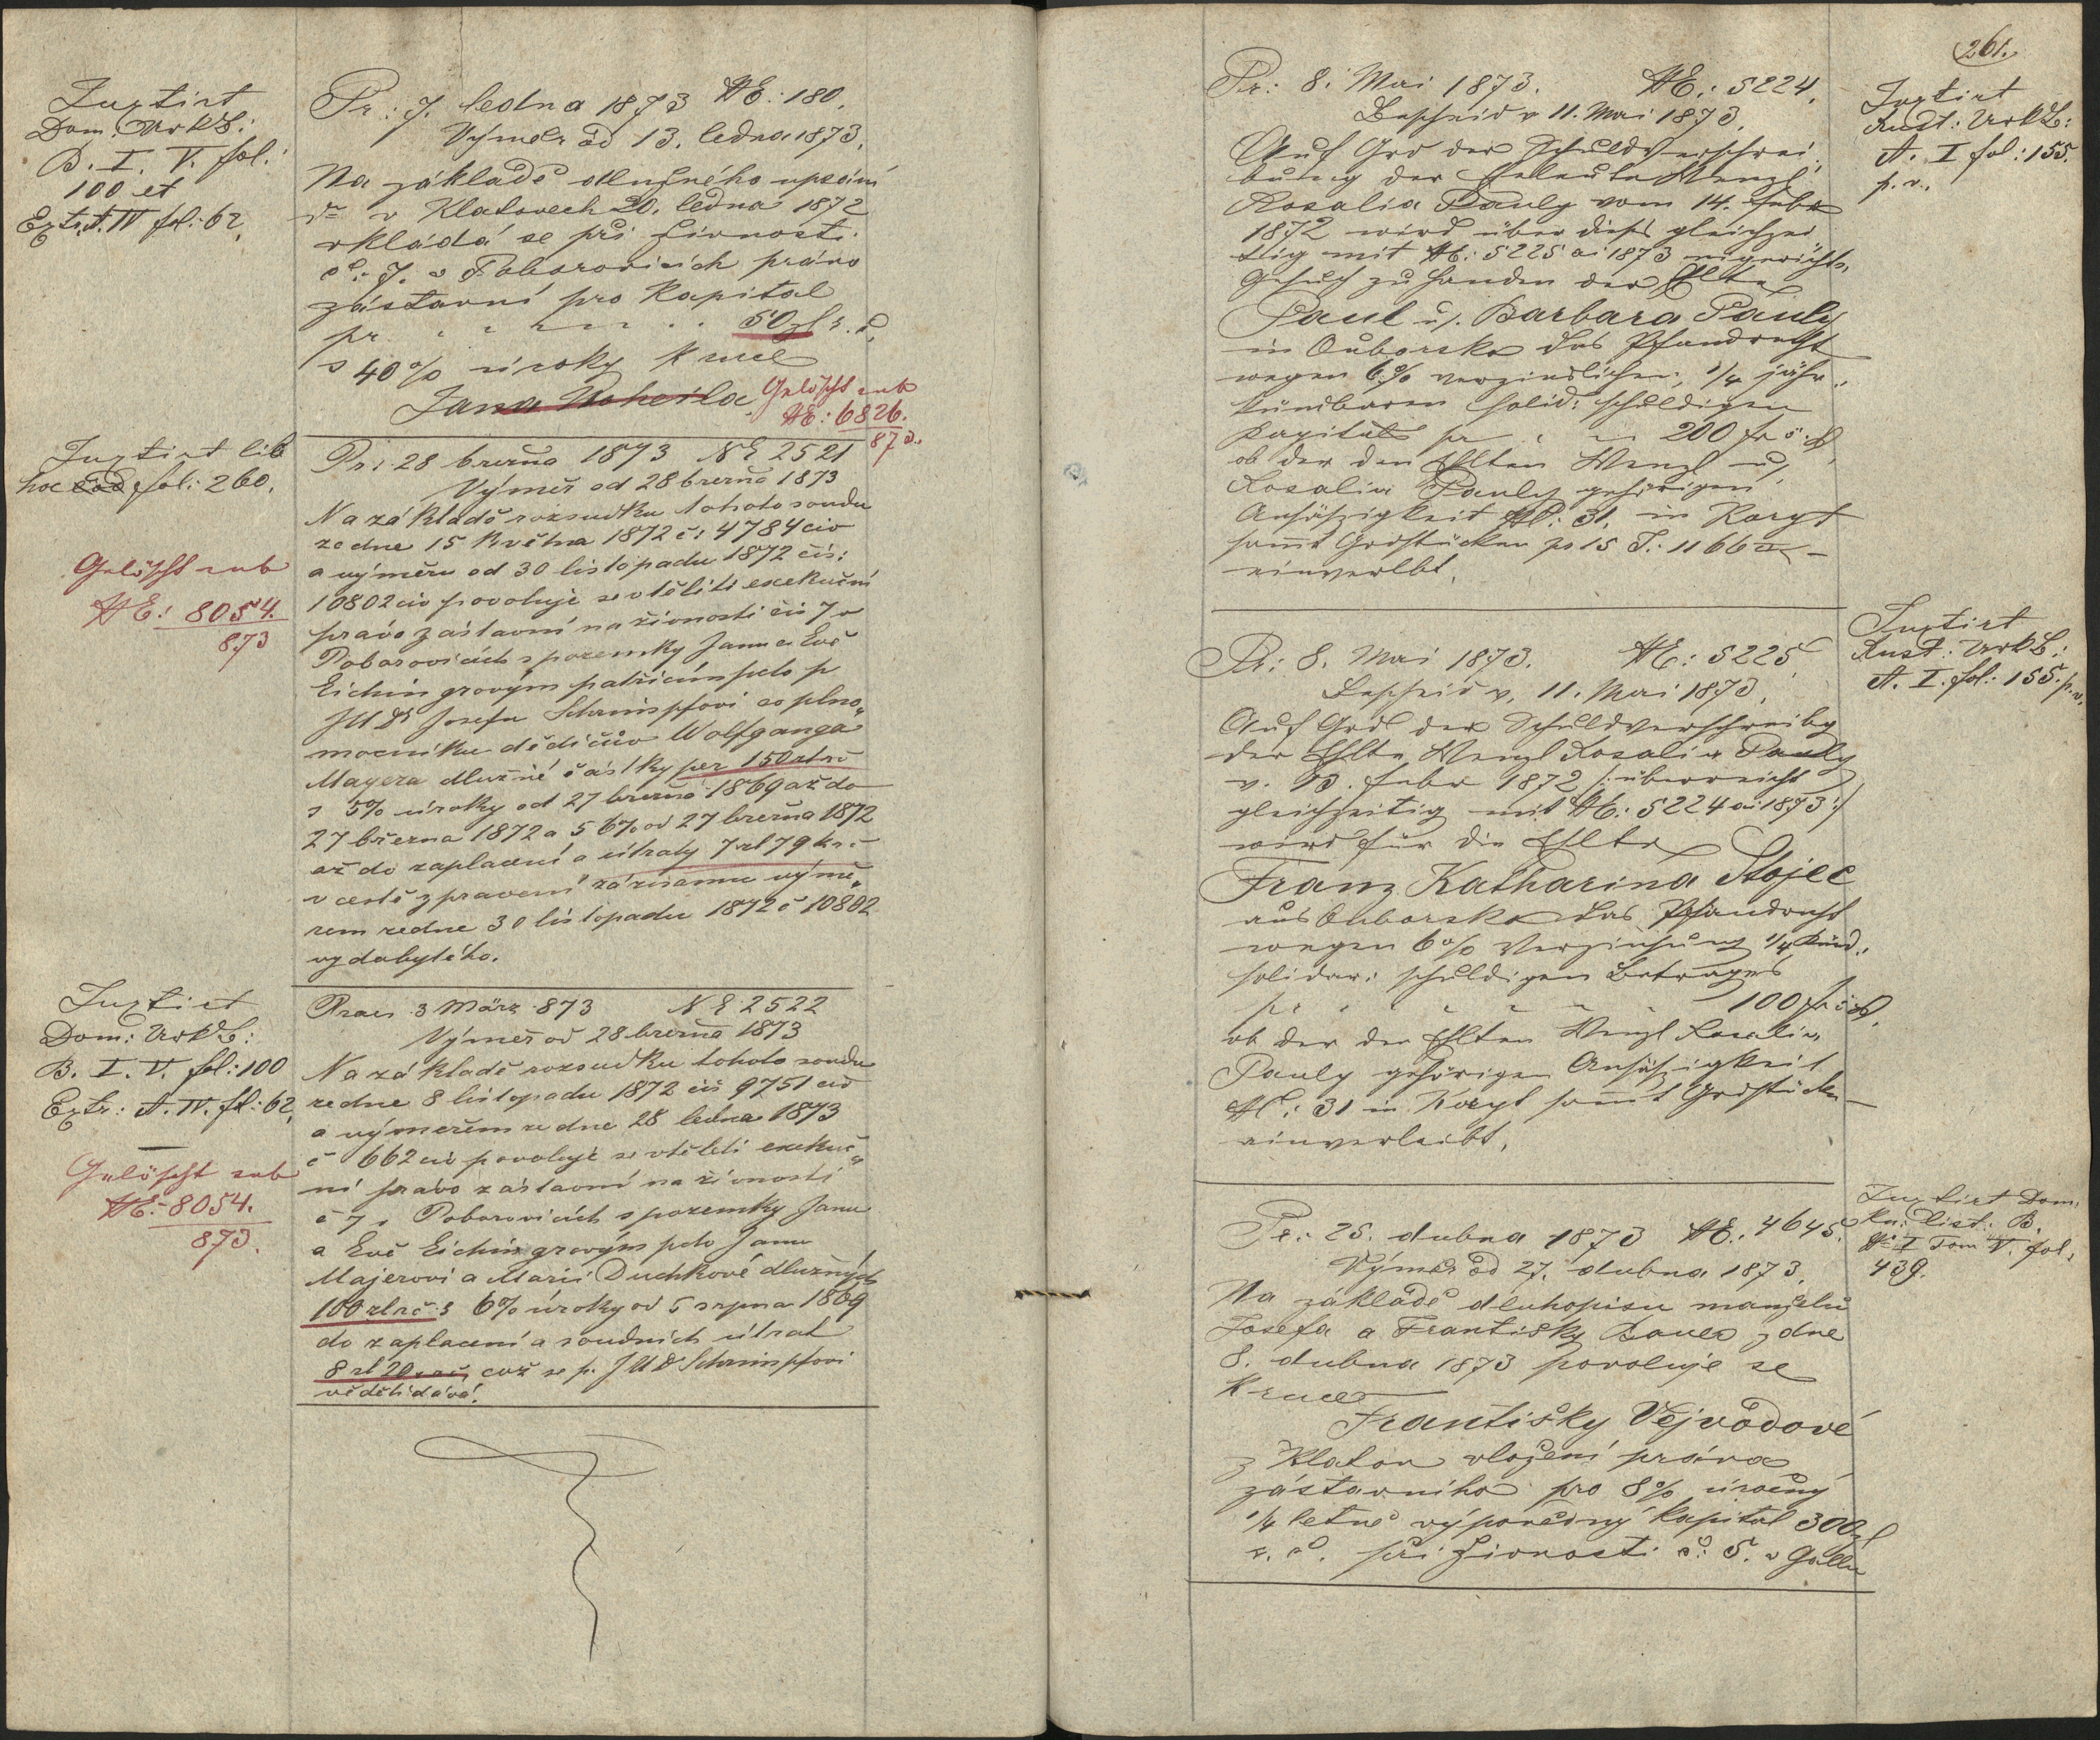 Juxtirt
Dom: UrkB:
B. I. V. fol:
100 et
Extr. A. IV fol: 62.
Pr: 7. ledna 1873 NE: 180.
Výměr od 13. ledna 1873.
Na základě dlužného upsání
v Klatovech 20. ledna 1872
vkládá se při živnosti
č: 7. v Poborovicích právo
zástavní pro kapitál
pr. 50 zl r. č.
s 40% úroky k ruce
Jana
Gelöscht sub
NE: 6826.
873.
Juxtirt lib
hoc fol: 260.
Gelöscht sub
NE: 8054.
873
Pr: 28 března 1873 NE 2521
Výměr od 28 března 1873
Na základě rozsudku tohoto soudu
ze dne 15 Května 1872 č: 4784 civ
a výměru od 30 listopadu 1872 čís:
10802 civ povoluje se vtělití exekuční
právo zástavní na živnosti čís 7 v
Poborovicích s pozemky Janu a Evě
Eichingrovým patřícím pcto p
JUDr Josefu Schrimpfovi co plno„
mocníku dědičův Wolfganga
Mayera dlužné částky per 150 zl rč
s 5% úroky od 27 března 1869 až do
27 března 1872 a 5 6% od 27 března 1872
až do zaplacení a útraty 7 zl 79 kr č
v cestě zpravení záznamu výmě„
rem ze dne 30 listopadu 1872 č 10802
vydobytého.
Juxtirt
Dom: UrkB:
B. I. V. fol: 100
Extr: A. IV. fol: 62.
Gelöscht sub
NE: 8054.
873.
Praes 3 März 873 NE 2522
Výměr od 28 března 1873
Na základě rozsudku tohoto soudu
ze dne 8 listopadu 1872 čís 9751 civ
a výměrem ze dne 28 ledna 1873
č 662 civ povoluje se vtěleti exekuč„
ní právo zástavní na živnosti
č 7 v Poborovicích s pozemky Janu
a Evě Eichingrovým pcto Janu
Majerovi a Marii Duchkové dlužných
100 zl rč s 6% úroky od 5 srpna 1869
do zaplacení a soudních útrat
8 zl 20 což se p. JUD Schrimpfovi
věděti dává.
261.
Pr: 8. Mai 1873. NE: 5224.
Bescheid v 11. Mai 1873.
Auf Grd der Schuldverschrei„
bung der Eheleute Wenzl
Rosalia Pauly vom 14. Febr
1872 wird über dieß gleichzei
tig mit NE: 5225 ai 1873
Gesuch zu Handen der Ehlte
Paul u. Barbara Pauly
in Auborsko das Pfandrecht
wegen 6% verzinslichen, 1/4 jähr„
kündbaren solid: schuldigen
Kapitals pr 200 fr ö. W.
ob der den Ehlten Wenzl u.
Rosalia Pauly gehörigen
Ansäßigkeit NC: 31. in
samt Grdstücken pr 15 J: 1166
einverlbt.
Juxtirt
Rust: UrkB:
A. I fol: 155.
p. v.
Pr: 8. Mai 1873. NE: 5225
Bescheid v. 11. Mai 1873.
Auf Grd der Schuldverschreibg
der Ehlte Wenzl Rosalia Pauly
v. 13. Febr 1872 /: überreicht
gleichzeitig mit NE: 5224 ai 1873 :/
wird für die Ehlte
Franz Katharina Stojec
aus Auborsko das Pfandrecht
wegen 6% Verzinsung 1/4 künd„
solidar: schuldigen Betrages
pr 100 fr ö. W.
ob der den Ehlten Wenzl Rosalia
Pauly gehörigen Ansäßigkeit
NC: 31 in samt Grdstücken
einverleibt.
Juxtirt
Rust: UrkB:
A. I. fol: 155. p. v.
Pr: 25. dubna 1873 NE: 4645.
Výměr od 27. dubna 1873.
Na základě dluhopisu manželů
Josefa a Františky Bauer z dne
8. dubna 1873 povoluje se
k ruce
Františky Vejvodové
z Klatov vložení práva
zástavního pro 8% úročný
1/4 letně výpovědný kapitál 300 zl
r. č. při živnosti č: 5. v
Juxtirt Dom.
kn: list: B.
N I Tom V. fol:
439.